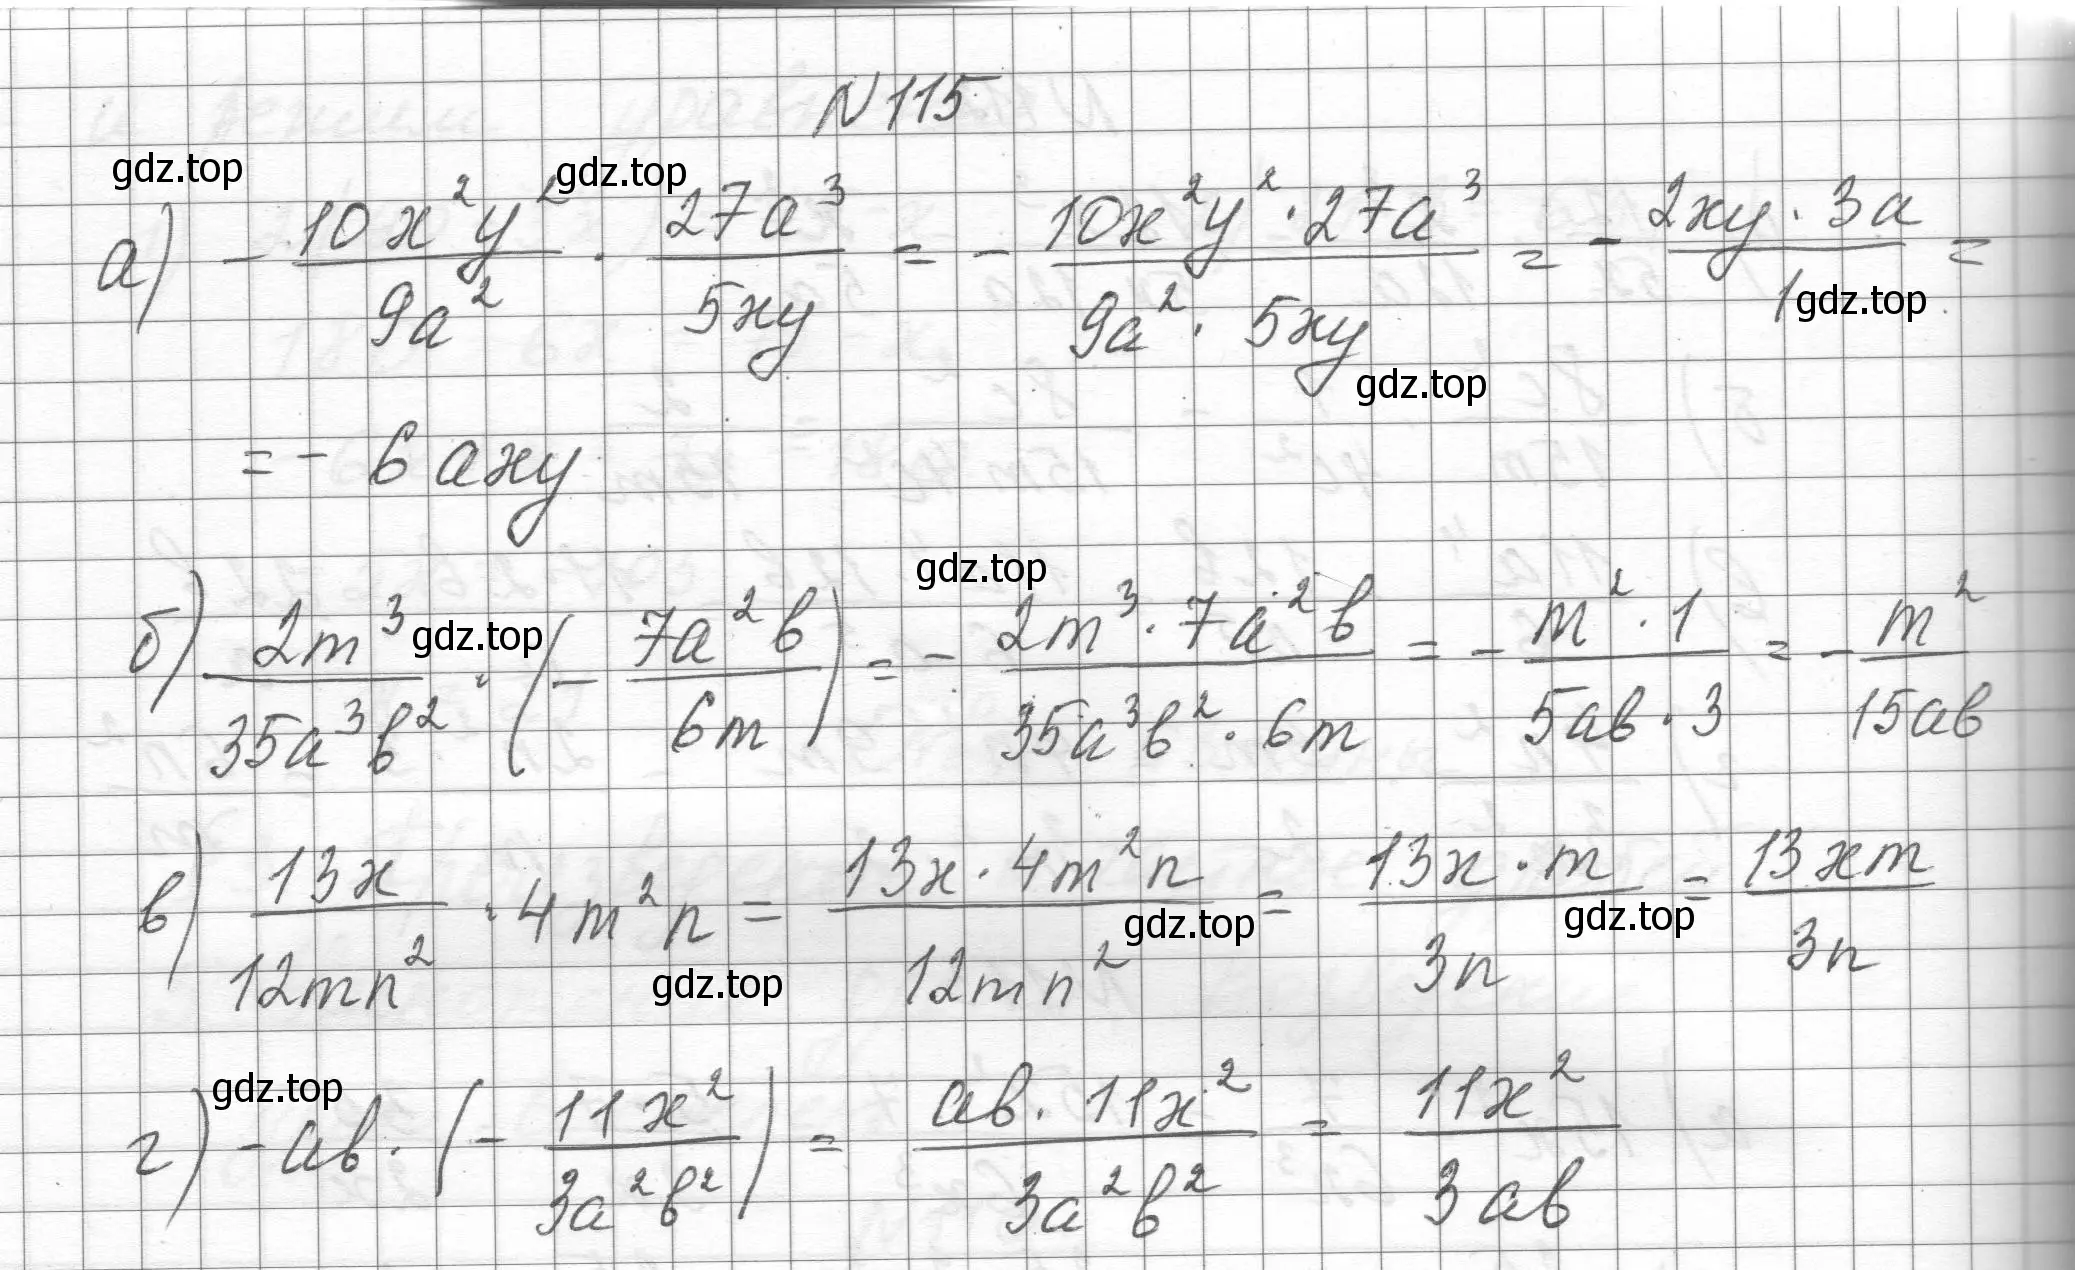 N 115
gdz.top gdz.top
а) - 10x²y²/9a² · 27a³/5xy = - 10x²y² · 27a³/9a² · 5xy = - 2xy · 3a/1 =
gdz.top
gdz.top
= - 6axy
gdz.top
б) 2m³/35a³b² · (- 7a²b/6m) = - 2m³ · 7a²b/35a³b² · 6m = - m² · 1/5ab · 3 = - m²/15ab
gdz.top
в) 13x/12mn² · 4m²n = 13x · 4m²n/12mn² = 13x · m/3n = 13xm/3n
gdz.top gdz.top
gdz.top
gdz.top
г) - ab · (- 11x²/3a²b²) = ab · 11x²/3a²b² = 11x²/3ab